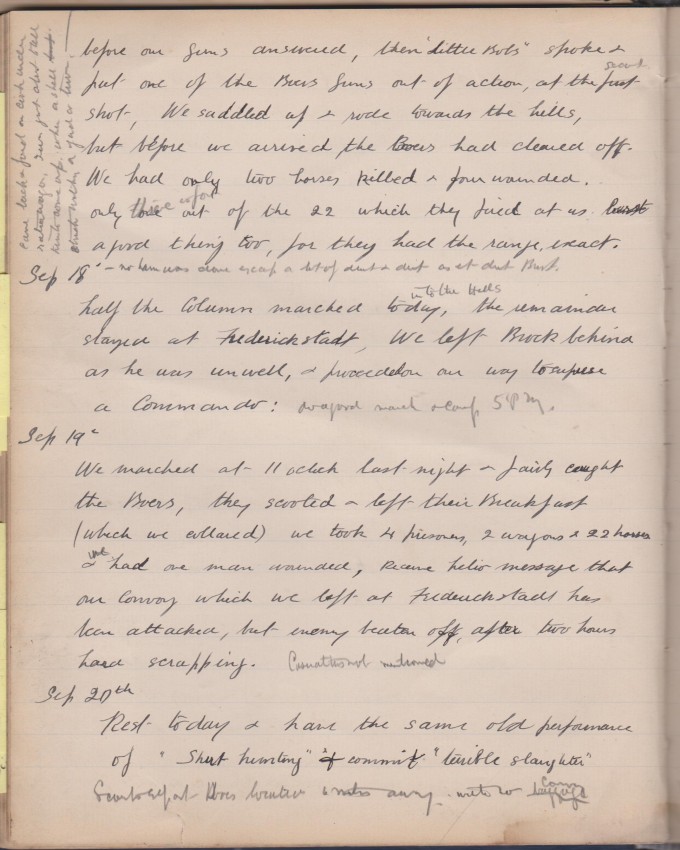 before our guns answered, then "Little Bobs" spoke &
put one of the Boers guns out of action, at the first second
shot, We saddled up & rode towards the hills,
but before we arrived, the Boers had cleared off.
We had only two horses killed & four wounded.
only three out of the 22 which they fired at us burst
a good thing too, for they had the range, exact.
Sep 18th – no harm was done except a lot of dust & dirt as it dust Burst.
half the Column marched today, into the Hills the remainder
stayed at Frederickstadt, We left Brock behind
as he was unwell, & proceeded on our way to surprise
a Commando: do a good march & camp 5 PM.
Sep 19th
We marched at 11 oclock last night & fairly caught
the Boers, they scooted & left their Breakfast
(which we collared) we took 4 prisoners, 2 wagons & 22 horses
& we had one man wounded, receive helio message that
our Convoy which we left at Frederickstadt has
been attacked, but enemy beaten off, after two hours
hard scrapping. Casualties not mentioned
Sep 20th
Rest today & have the same old performance
of "Shirt hunting" & commit "terrible slaughter"
Scouts report Boers located miles away with